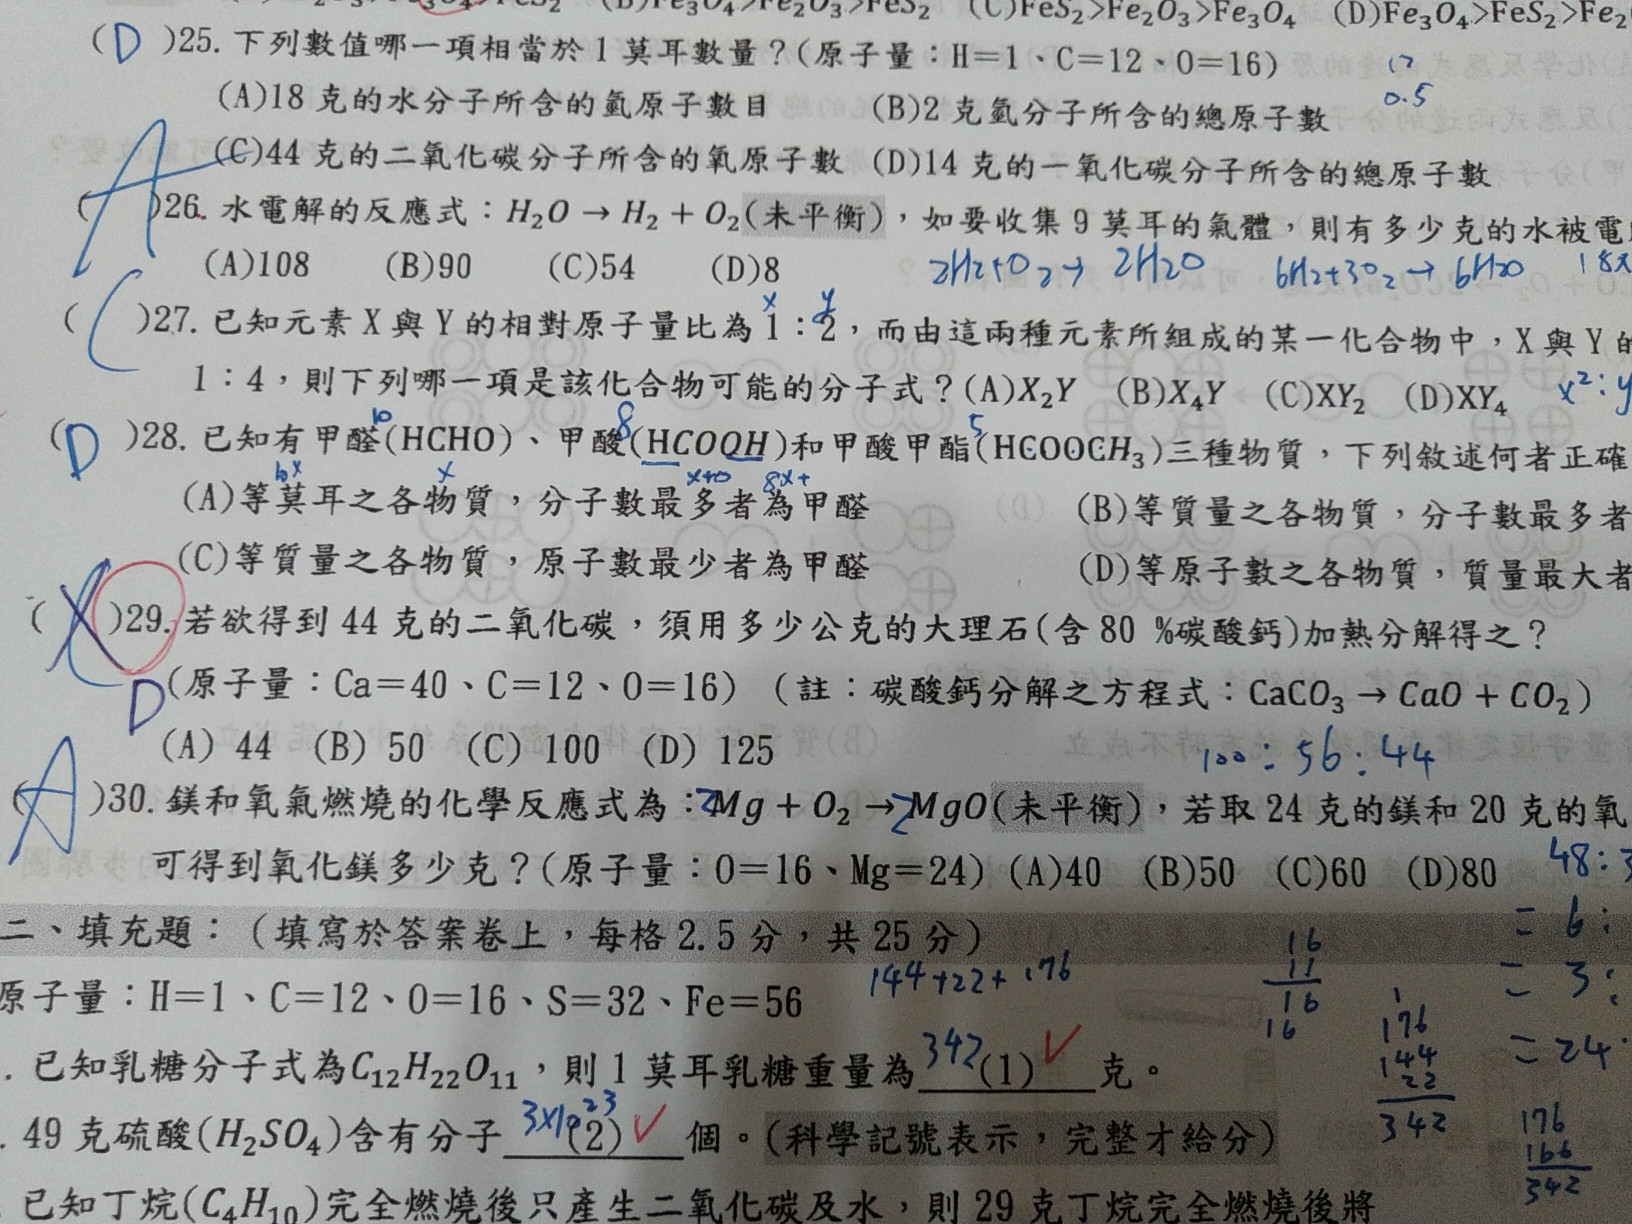 (B)Fe₃O₄>Fe₂O₃>FeS₂ (C)FeS₂>Fe₂O₃>Fe₃O₄ (D)Fe₃O₄>FeS₂>Fe₂
( D )25. 下列數值哪一項相當於 1 莫耳數量？(原子量：H=1、C=12、O=16)
(A)18 克的水分子所含的氫原子數目 (B)2 克氫分子所含的總原子數
0.5
(C)44 克的二氧化碳分子所含的氧原子數 (D)14 克的一氧化碳分子所含的總原子數
( A )26. 水電解的反應式：H₂O → H₂ + O₂(未平衡)，如要收集 9 莫耳的氣體，則有多少克的水被電
(A)108 (B)90 (C)54 (D)8
2H₂+O₂→ 2H₂O 6H₂+3O₂→6H₂O 18x
x y
( C )27. 已知元素 X 與 Y 的相對原子量比為 1：2，而由這兩種元素所組成的某一化合物中，X 與 Y 的
1：4，則下列哪一項是該化合物可能的分子式？(A)X₂Y (B)X₄Y (C)XY₂ (D)XY₄
8 5
( D )28. 已知有甲醛(HCHO)、甲酸(HCOOH)和甲酸甲酯(HCOOCH₃)三種物質，下列敘述何者正確
(A)等莫耳之各物質，分子數最多者為甲醛 (B)等質量之各物質，分子數最多者
(C)等質量之各物質，原子數最少者為甲醛 (D)等原子數之各物質，質量最大者
( )29. 若欲得到 44 克的二氧化碳，須用多少公克的大理石(含 80 %碳酸鈣)加熱分解得之？
D
(原子量：Ca=40、C=12、O=16) (註：碳酸鈣分解之方程式：CaCO₃ → CaO + CO₂)
(A) 44 (B) 50 (C) 100 (D) 125
100：56：44
( A )30. 鎂和氧氣燃燒的化學反應式為：2Mg + O₂ → 2MgO(未平衡)，若取 24 克的鎂和 20 克的氧
可得到氧化鎂多少克？(原子量：O=16、Mg=24) (A)40 (B)50 (C)60 (D)80
48：3
= 6：
= 3：
= 24
二、填充題：(填寫於答案卷上，每格 2.5 分，共 25 分)
144+22+176
16
11
16
16
原子量：H=1、C=12、O=16、S=32、Fe=56
1
176
144
22
342
. 已知乳糖分子式為C₁₂H₂₂O₁₁，則 1 莫耳乳糖重量為 342 (1) 克。
. 49 克硫酸(H₂SO₄)含有分子 3x10²³ (2) 個。(科學記號表示，完整才給分)
176
166
342
已知丁烷(C₄H₁₀)完全燃燒後只產生二氧化碳及水，則 29 克丁烷完全燃燒後將